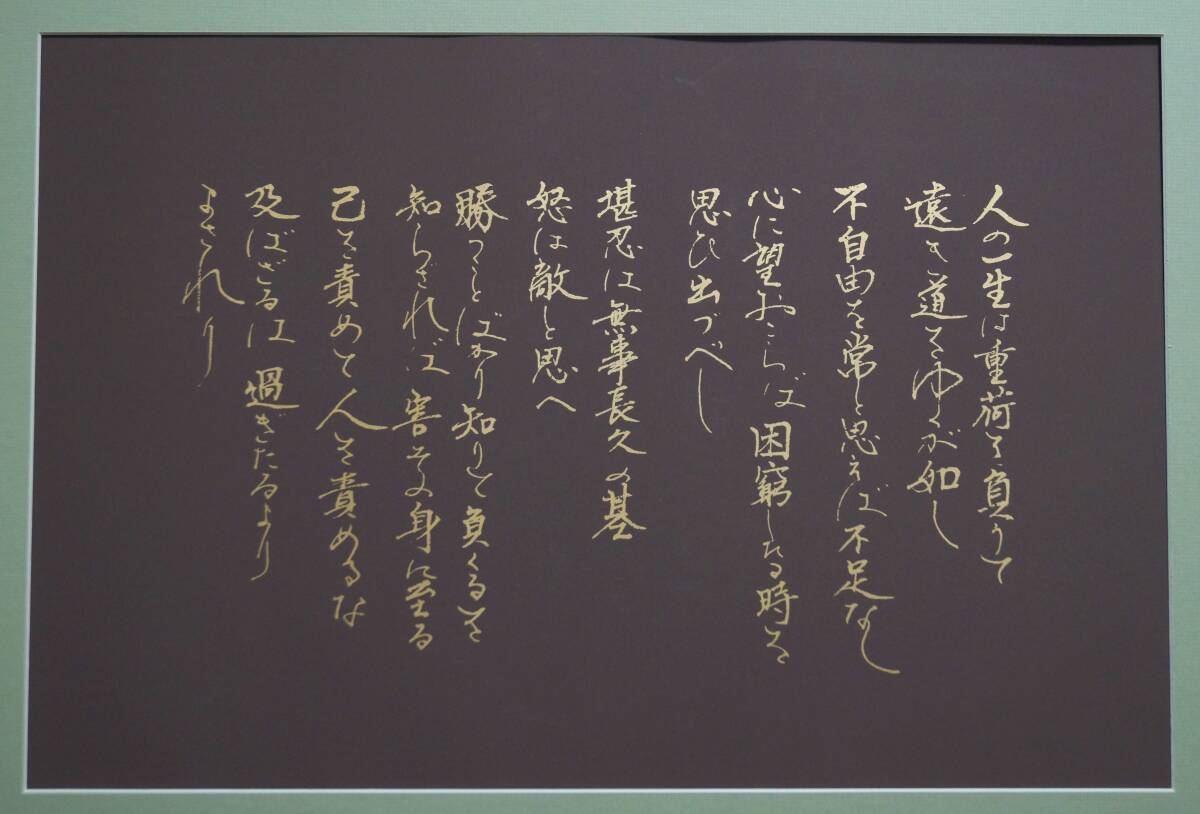 人の一生は重荷を負うて
遠き道をゆくが如し
不自由を常と思えば不足なし
心に望おこらば困窮したる時を
思ひ出づべし
堪忍は無事長久の基
怒は敵と思へ
勝つことばかり知りて負くるを
知らざれば害その身に至る
己を責めて人を責めるな
及ばざるは過ぎたるより
まされり